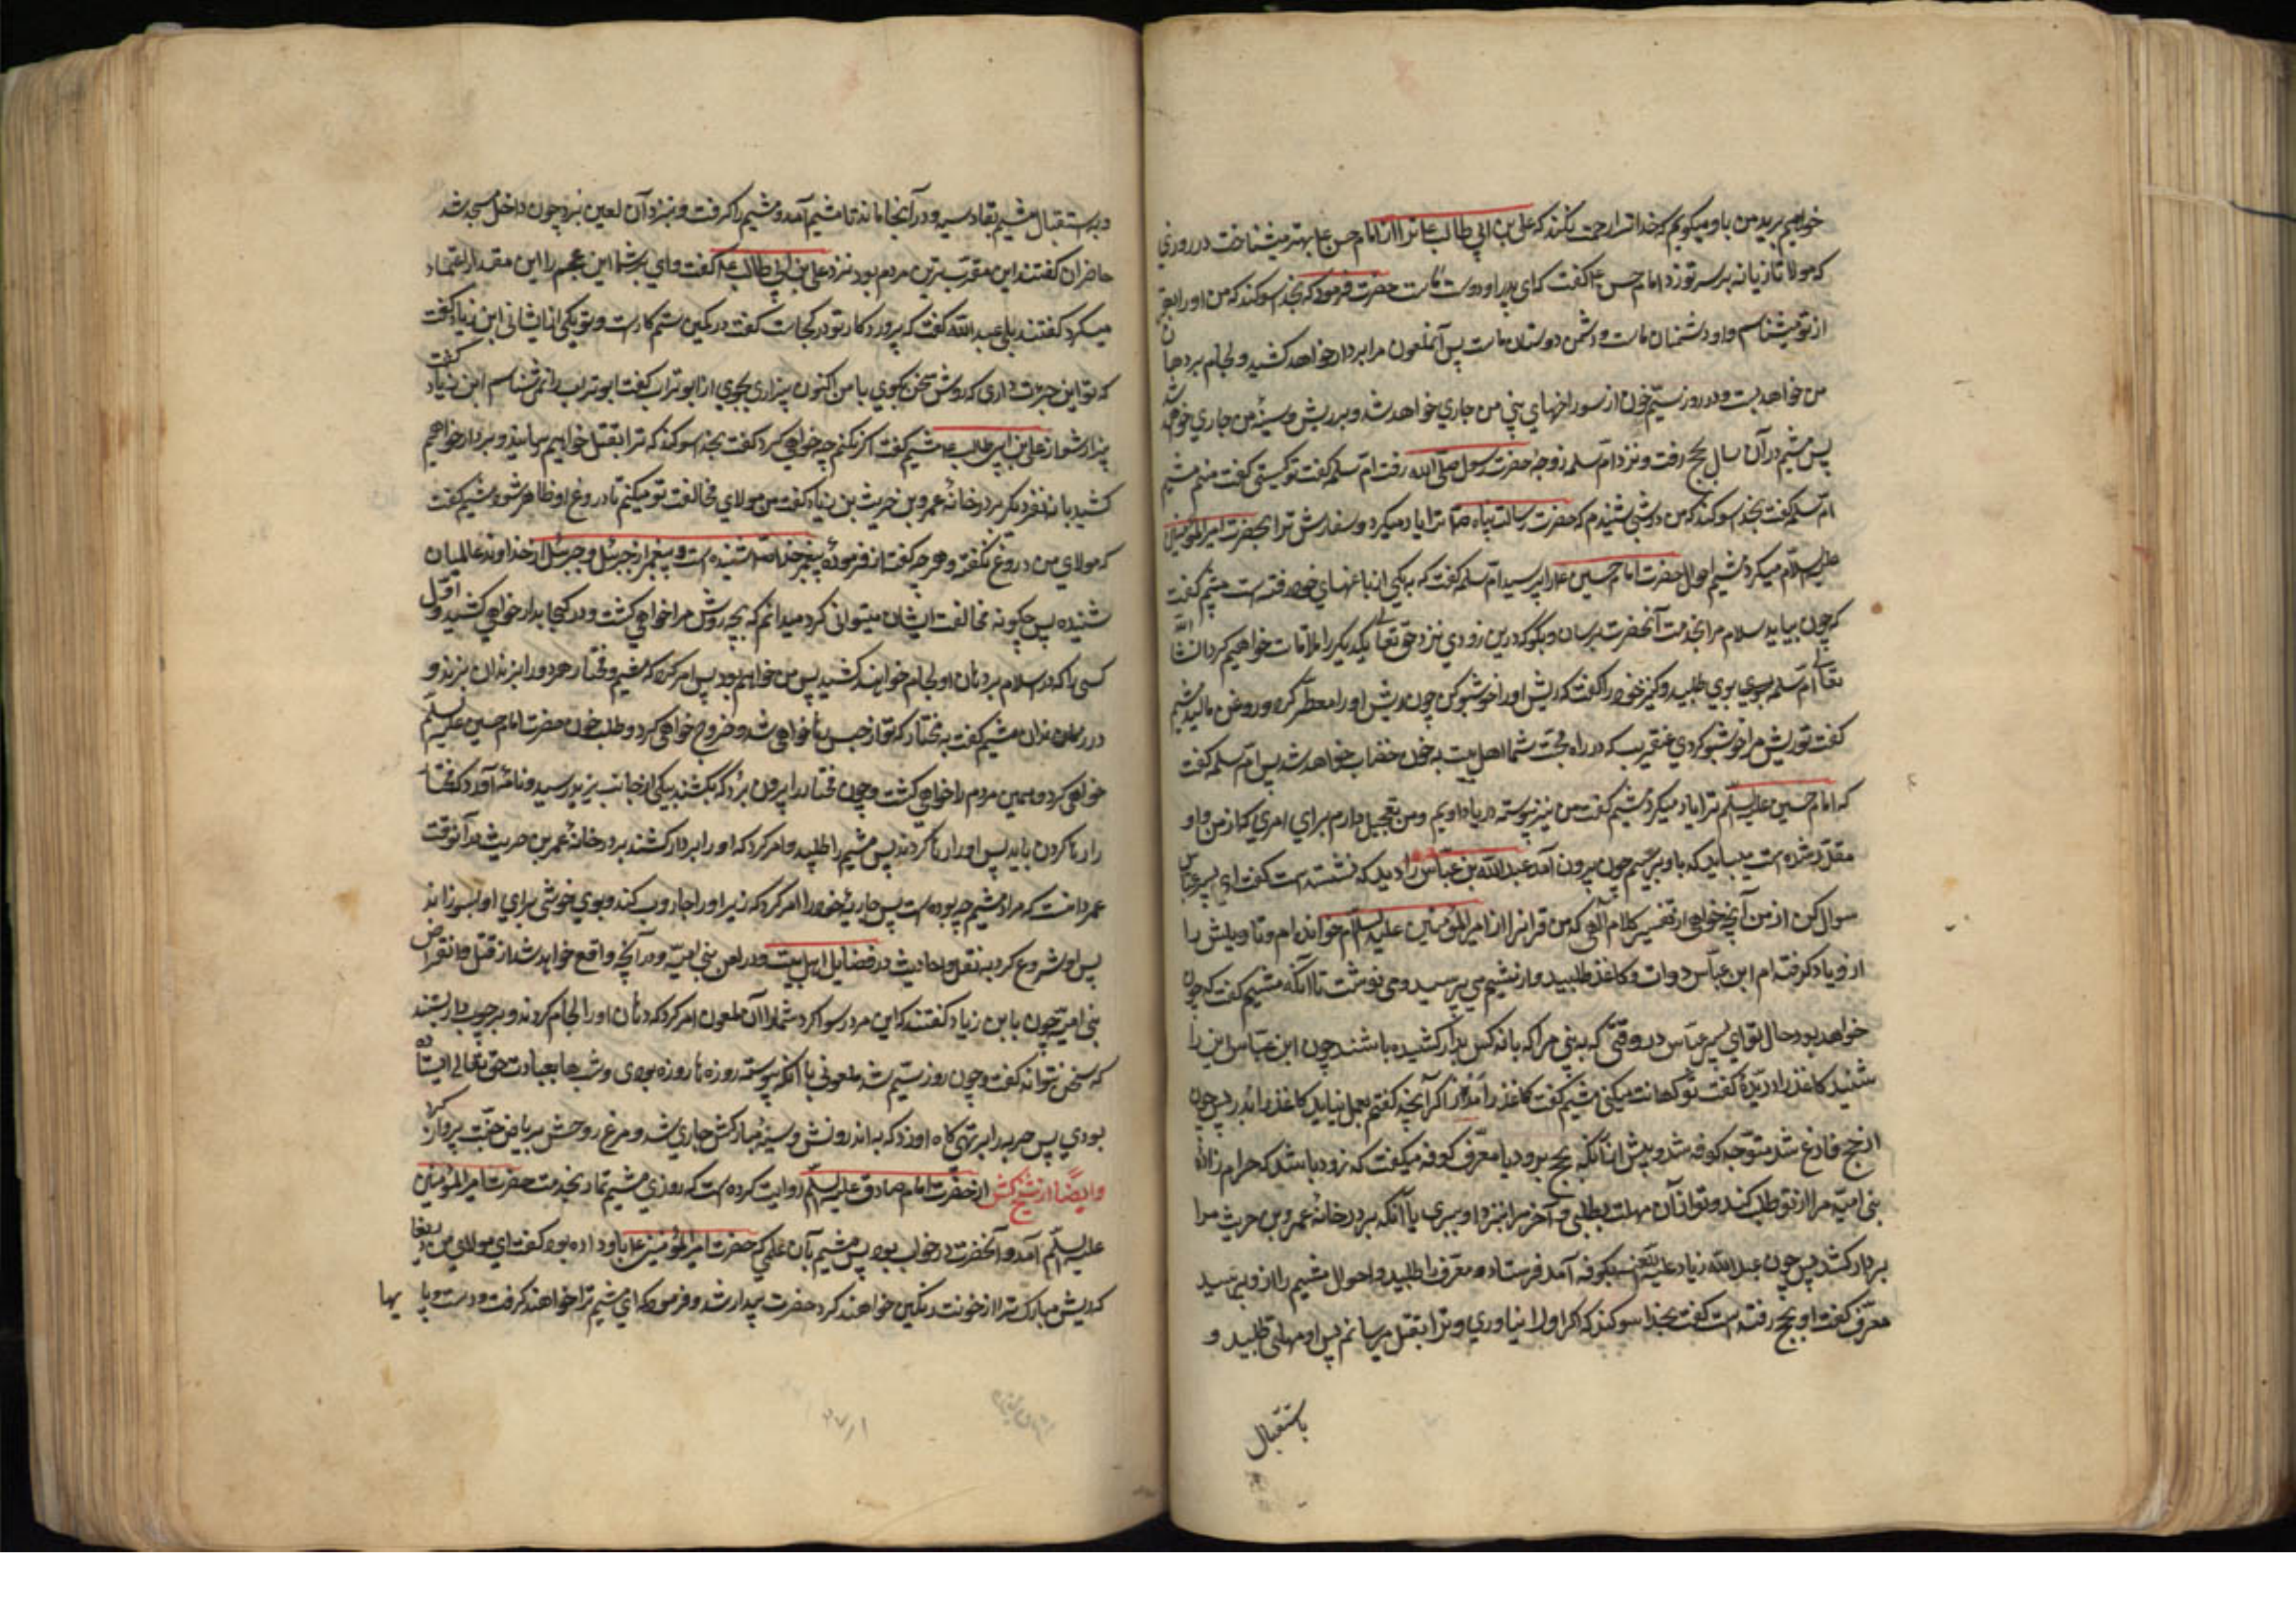 خواهیم برید من باو میکویم که خدا ترا رحمت نکند که علی بن ابی طالب ع ترا از امام حسن ع بهتر میشناخت در روزی
که مولا تازیانه بر سر تو زد امام حسن ع گفت که ای پدر او دوست ماست حضرت فرمود که بخدا سوکند که من او را بهتر
از تو میشناسم و او دشمنان ماست و دشمن دوستان ماست پس آنملعون مرا بردار خواهد کشید و لجام بر دهان
من خواهد بست و در روز سیّم خون از سوراخهای بینی من جاری خواهد شد و بر ریش و سینهٔ من جاری خواهد شد
پس میثم در آن سال بحج رفت و نزد امّ سلمه زوجهٔ حضرت رسول صلّی الله رفت امّ سلمه گفت تو کیستی گفت منم میثم
امّ سلمه گفت بخدا سوکند که من در شبی شنیدم که حضرت رسالت پناه ص ترا یاد میکرد و سفارش ترا بحضرت امیر المؤمنین
علیه السلام میکرد میثم احوال حضرت امام حسین ع را پرسید امّ سلمه گفت که بیکی از باغهای خود رفته است میثم گفت
که چون بیاید سلام مرا بخدمت آنحضرت برسان و بگو که درین زودی نزد حق تعالی یکدیگر را ملاقات خواهیم کرد انشا الله
تعالی امّ سلمه بوی طلبید و کنیز خود را گفت که ریش او را خوشبو کن چون ریش او را معطّر کرد و روغن مالید میثم
گفت تو ریش مرا خوشبو کردی عنقریب که در راه محبّت شما اهل بیت بخون خضاب خواهد شد پس امّ سلمه گفت
که امام حسین علیه السلم ترا یاد میکرد میثم گفت من نیز پیوسته در یاد اویم و من تعجیل دارم برای امری که از من و او
مقدّر شده است میباید که باو برسیم چون بیرون آمد عبد الله بن عبّاس را دید که نشسته است گفت ای پسر عبّاس
سوال کن از من آنچه خواهی از تفسیر کلام الهی که من قرانرا از امیر المؤمنین علیه السلام خوانده ام و تاویلش را
از و یاد گرفته ام ابن عبّاس دوات و کاغذ طلبید و از میثم می پرسید و می نوشت تا آنکه میثم گفت که چون
خواهد بود حال تو ای پسر عبّاس در وقتی که ببینی مرا که با نه کس بدار کشیده باشند چون ابن عبّاس این را
شنید کاغذ را درید گفت تو کهانت میکنی میثم گفت کاغذ را مدر اگر آنچه گفتم بعمل نیاید کاغذ را بدر پس چون
از حج فارغ شد متوجّه کوفه شد و پیش از آنکه بحج برود با معرّف کوفه میگفت که زود باشد که حرام زاده
بنی امیّه مرا از تو طلب کند و تو از آن مهلت بطلبی و آخر مرا بنزد او ببری یا آنکه بر در خانهٔ عمرو بن حریث مرا
بردار کشد پس چون عبد الله زیاد علیه اللعن بکوفه آمد فرستاد و معرّف را طلبید و احوال میثم را از و پرسید
معرّف گفت او بحج رفته است گفت بخدا سوکند که اگر او را نیاوری و ترا بقتل میرسانم پس او مهلتی طلبید و
باستقبال
دباستقبال میثم بقادسیه و در آنجا ماند تا میثم آمد و میثم را گرفت و بنزد آن لعین برد چون داخل مسجد شد
حاضران گفتند این مقرّب ترین مردم بود نزد علی بن ابی طالب ع گفت وای بر شما این عجم را این مقدار اعتماد
میکرد گفتند بلی عبد الله گفت که پروردکار تو در کجاست گفت در کمین ستمکارست و تو یکی از ایشانی ابن زیاد گفت
که تو این جرئت داری که روش سخن بگوی با من اکنون بیزاری بجوی از ابو تراب گفت ابو تراب را نمی شناسم ابن زیاد گفت
بیزار شو از علی بن ابی طالب ع میثم گفت اگر نکنم چه خواهی کرد گفت بخدا سوکند که ترا بقتل خواهیم رسانید و بر دار خواهیم
کشید با نه نفر دیگر بر در خانهٔ عمرو بن حریث بن زیاد گفت من مولای مخالفت تو میکنم تا دروغ او ظاهر شود میثم گفت
که مولای من دروغ نگفته و هر چه گفت از فرمودهٔ پیغمبر خدا ص شنیده است و پیغمبر از جبرئیل و جبرئیل از خداوند عالمیان
شنیده پس چگونه مخالفت ایشان میتوانی کرد میدانم که بچه روش مرا خواهی کشت و در کجا بدار خواهی کشید و اوّل
کسی را که در اسلام بر دهان او لجام خواهند کشید پس من خواهم بود پس امر کرد که میثم و مختار هر دو را بزندان بردند و
در زندان میثم گفت به مختار که تو از حبس رها خواهی شد و خروج خواهی کرد و طلب خون حضرت امام حسین علیه السلم
خواهی کرد و همین مردم را خواهی کشت و چون مختار را بیرون برد که بکشند پیکی از جانب یزید رسید و نامه آورد که مختار
را رها کردن باید پس او را رها کردند پس میثم را طلبید و امر کرد که او را بر دار کشند بر در خانهٔ عمر بن حریث در آنوقت
عمر دانست که مراد میثم چه بوده است پس جاریهٔ خود را امر کرد که زیر او را جاروب کند و بوی خوشی برای او بسوزاند
پس او شروع کرد به نقل احادیث در فضایل اهل بیت و در لعن بنی امیّه و در آنچه واقع خواهد شد از قتل و انقراض
بنی امیّه چون با ابن زیاد گفتند که این مرد رسوا کرد شما را آن ملعون امر کرد که دهان او را لجام کردند و بر چوب دار بستند
که سخن نتواند گفت و چون روز سیّم شد ملعونی با آنکه پیوسته روزه ها روزه بودی و شبها بعبادت حق تعالی ایستاده
بودی پس حربه را بر تهی کاه او زد که به اندرونش و سینه مبارکش جاری شد و مرغ روحش بریاض جنّت پرواز کرد
وایضًا از شیخ کش از حضرت امام صادق علیه السلم روایت کرده است که روزی میثم تمار بخدمت حضرت امیر المؤمنین
علیه السلم آمد و آنحضرت در خواب بود پس میثم بآن علمی که حضرت امیر المؤمنین ع باو داده بود گفت ای مولای من
که ریش مبارک ترا از خونت رنگین خواهند کرد حضرت بیدار شد و فرمود که ای میثم ترا خواهند گرفت و دست و پا یها